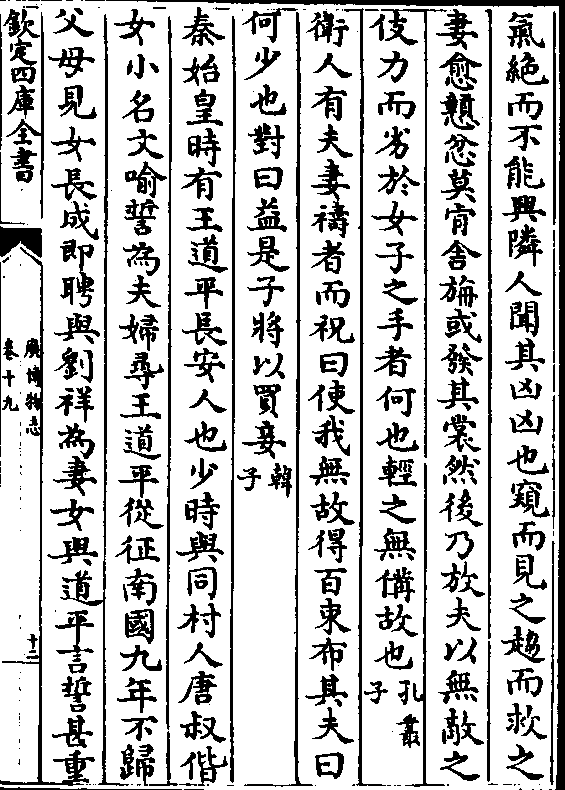 氣絶而不能興隣人聞其凶凶也窺而見之趨而救之
妻愈戇忿莫肯舍旃或發其裳然後乃放夫以無敵之
伎力而劣於女子之手者何也輕之無備故也孔叢子
衛人有夫妻禱者而祝曰使我無故得百束布其夫曰
何少也對曰益是子將以買妾韓子
秦始皇時有王道平長安人也少時與同村人唐叔偕
女小名文喻誓為夫婦尋王道平從征南國九年不歸
父母見女長成即聘與劉祥為妻女與道平言誓甚重
欽定四庫全書
廣博物志
卷十九
十二